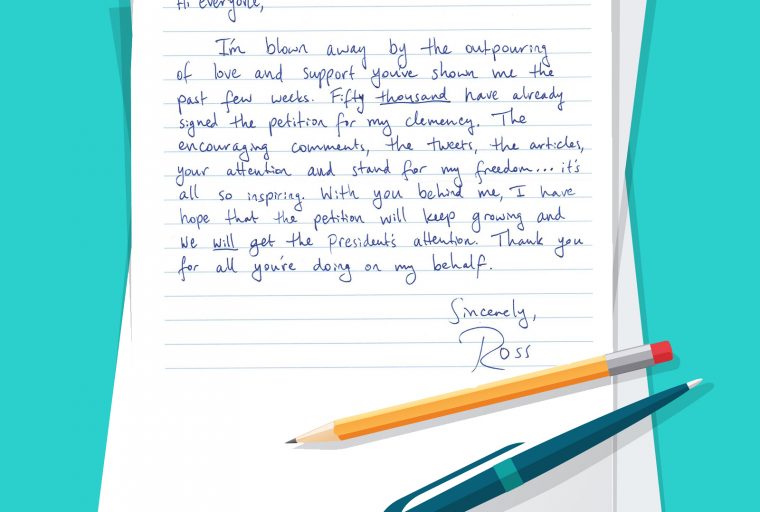 Hi everyone,
I'm blown away by the outpouring
of love and support you've shown me the
past few weeks. Fifty thousand have already
signed the petition for my clemency. The
encouraging comments, the tweets, the articles,
your attention and stand for my freedom... it's
all so inspiring. With you behind me, I have
hope that the petition will keep growing and
we will get the President's attention. Thank you
for all you're doing on my behalf.
Sincerely,
Ross